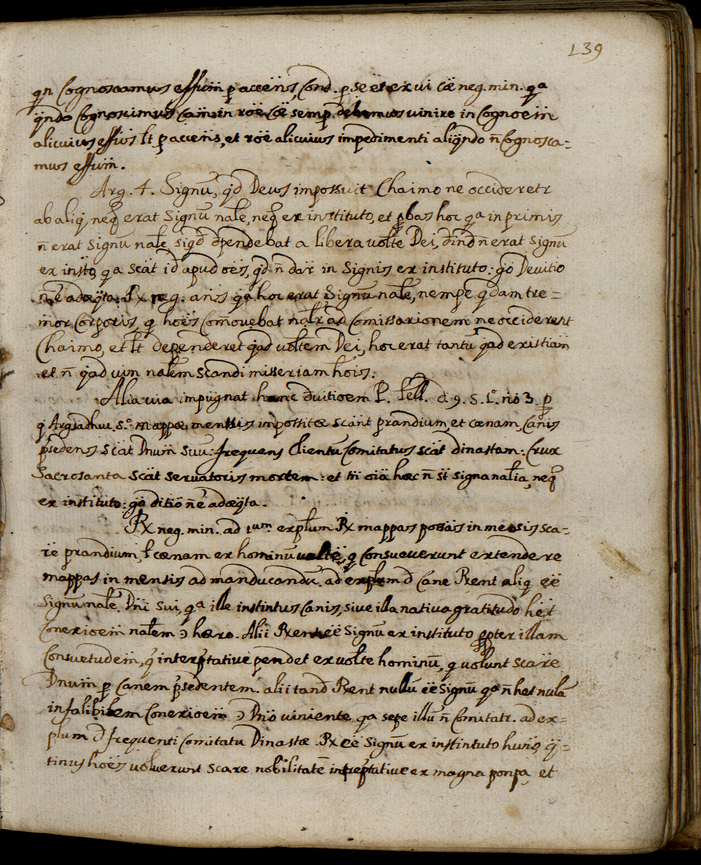 139
qn Cognoscamus effum p accens, Cond. p se est ex vi cae neg. min. qa
qndo Cognoscimus cam in roe cae semp. debemus vinire in Cognoem
alicuius effus lt p accens, et roe alicuius impedimenti aliqndo n Cognosca=
mus effum.
Arg. 4. Signu, qd Deus impossuit Chaimo ne occideretr
ab aliq neq erat Signu nale, neq ex instituto, et pbas hoc qa in primis
n erat Signu nale siqd dpendebat a libera volte Dei, dind n erat Signu
ex insto, qa scat id apud oes, qd n dar in Signis ex instituto: go Devitio
adaeqta. Rx neg. ans qa hoc erat Signu nale, nempe qdam tre=
mor Corporis, q hoies Comovebat nalr ad Comissarionem ne occiderent
Chaimo, et lt dependeret qad voltem Dei, hoc erat tantu qad existiam
et n qad vim nalem scandi misseriam hois.
Alia via impugnat hanc dvitioem P. Tell. d. 9. S. L. no 3. p
q Arg adhuc, s. mappae mensis impossitae scant prandium et caenam, Canis
psedens scat Dnum suu: frequens Clientu Comitatus scat dinastam: Crux
Sacrosanta scat servatoris mortem: et tn oia haec n st signa nalia, neq
ex instituto: go ditio n e adaeqta.
Rx neg. min. ad 1um explum Rx mappas possais in mensis sca=
re prandium, l caenam ex hominu volte, q Consueverunt extendere
mappas in mensis ad manducandu. ad explum d Cane Rent aliq ee
Signu nale Dni sui, qa ille instintus Canis, sive illa nativa gratitudo het
Conexioem nalem c haero. Alii Rxent ee Signu ex instituto ppter illam
Consuetudem, q interptative pendet ex volte hominu, q volunt scare
Dnum p Canem psedentem. alii tand Rent nullu ee Signu qa n het nula
infalibilem Conexioem c Dno viniente, qa sepe illu n Comitatr. ad ex=
plum d frequenti Comitatu Dinastae Rx ee Signu ex instintuto huno q=
tinus hoes voluerunt scare nobilitate interptative ex magna ponpa, et